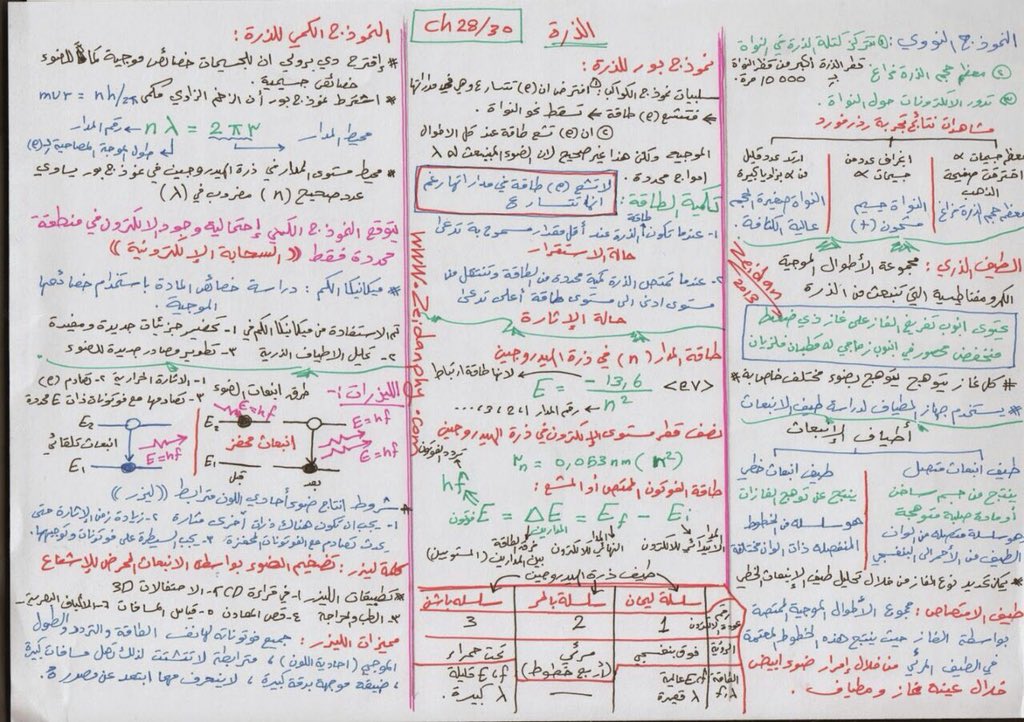 Ch 28/30
الذرة
النموذج النووي: ① تتركز كتلة الذرة في النواة
② معظم حجم الذرة فراغ
قطر الذرة أكبر من قطر النواة بـ 10000 مرة.
③ تدور الالكترونات حول النواة.
مشاهدات نتائج تجربة رذرفورد
معظم جسيمات α اخترقت صفيحة الذهب
معظم حجم الذرة فراغ
انحراف عدد من جسيمات α
النواة جسيم مشحون (+)
ارتد عدد قليل من α بزوايا كبيرة
النواة صغيرة الحجم عالية الكثافة
الطيف الذري: مجموعة الأطوال الموجية
الكهرومغناطيسية التي تنبعث من الذرة
يحتوي أنبوب تفريغ الغاز على غاز ذي ضغط
منخفض محصور في انبوب زجاجي له قطبان فلزيان
* كل غاز يتوهج يتوهج بضوء مختلف خاص به *
* يستخدم جهاز المطياف لدراسة طيف الانبعاث
أطياف الانبعاث
طيف انبعاث متصل
ينتج من جسم ساخن
أو مادة صلبة متوهجة
هو سلسلة متصلة من ألوان
الطيف من الأحمر إلى البنفسجي
طيف انبعاث خطي
ينتج عن توهج الغازات
هو سلسلة من الخطوط
المنفصلة ذات ألوان مختلفة
* يمكن تحديد نوع الغاز من خلال تحليل طيف الانبعاث الخطي
طيف الامتصاص: مجموع الأطوال الموجية الممتصة
بواسطة الغاز حيث ينتج هذه الخطوط المعتمة
في الطيف المرئي من خلال إمرار ضوء أبيض
خلال عينة غاز ومطياف.
Zeidan 2013
نموذج بور للذرة:
سلبيات نموذج الكواكب: ① افترض ان (e) تتسارع وهي في مداراتها
← فتشع (e) طاقة ← تسقط نحو النواة.
② ان (e) تشع طاقة عند كل الاطوال
الموجية ولكن هذا غير صحيح لان الضوء المنبعث له λ
امواج محدودة.
لا تشع (e) طاقة في مدارتها رغم
انها تتسارع
كمية الطاقة:
1- عندما تكون طاقة الذرة عند أقل مقدار مسموح به تدعى
حالة الاستقرار
2- عندما تمتص الذرة كمية محددة من الطاقة وتنتقل من
مستوى ادنى الى مستوى طاقة أعلى تدعى
حالة الإثارة
طاقة المدار (n) في ذرة الهيدروجين
E = −13,6 / n² <ev>
لانها طاقة ارتباط
رقم المدار 1, 2, 3, ...
نصف قطر مستوى الالكترون في ذرة الهيدروجين
rn = 0,053 nm (n²)
طاقة الفوتون الممتص أو المشع:
تردد الفوتون
hf
E فوتون = ΔE = Ef − Ei
طيف ذرة الهيدروجين
سلسلة ليمان
سلسلة بالمر
سلسلة باشن
1 2 3
فوق بنفسجي
مرئي
(أربع خطوط)
تحت حمراء
الطاقة E, f, λ
E, f عالية
λ قصيرة
E, f قليلة
λ كبيرة.
www.Zeidanphy.com
النموذج الكمي للذرة:
* إقترح دي برولي ان للجسيمات خصائص موجية كما للضوء
خصائص جسيمية.
* اشترط نموذج بور أن الزخم الزاوي مكمى mvr = nh/2π
nλ = 2πr
محيط المدار
رقم المدار
طول الموجة المصاحبة لـ(e)
* محيط مستوى المدار في ذرة الهيدروجين في نموذج بور يساوي
عدد صحيح (n) مضروب في (λ)
يتوقع النموذج الكمي إحتمالية وجود الالكترون في منطقة
محددة فقط (( السحابة الإلكترونية ))
* ميكانيكا الكم: دراسة خصائص المادة باستخدام خصائصها
الموجية.
تم الاستفادة من ميكانيكا الكم في 1- تحضير جزيئات جديدة ومفيدة
2- تحليل الاطياف الذرية 3- تطوير مصادر جديدة للضوء
الليزرات:-
طرق انبعاث الضوء
1- الاثارة الحرارية 2- تصادم (e)
3- تصادمها مع فوتونات ذات E محددة
E2 E1
انبعاث تلقائي
E=hf
E2 E1
E=hf
انبعاث محفز
قبل
بعد
E=hf
E=hf
* شروط انتاج ضوء أحادي اللون مترابط (( ليزر ))
1- يجب ان تكون هناك ذرات أخرى مثارة 2- زيادة زمن الإثارة حتى
يحدث تصادم مع الفوتونات المحفزة. 3- يجب السيطرة على الفوتونات وتوجيهها.
كلمة ليزر: تضخيم الضوء بواسطة الانبعاث المحرض للإشعاع
* تطبيقات الليزر 1- في قراءة CD 2- الاحتفالات 3D
3- الطب والجراحة 4- قص المعادن 5- قياس المسافات 6- الألياف البصرية
مميزات الليزر: جميع فوتوناته لها نفس الطاقة والتردد والطول
الموجي (احادية اللون)، مترابطة لا تتشتت لذلك تصل مسافات كبيرة
، ضيقة موجهة بدقة كبيرة، لا ينحرف مهما ابتعد عن مصدره.